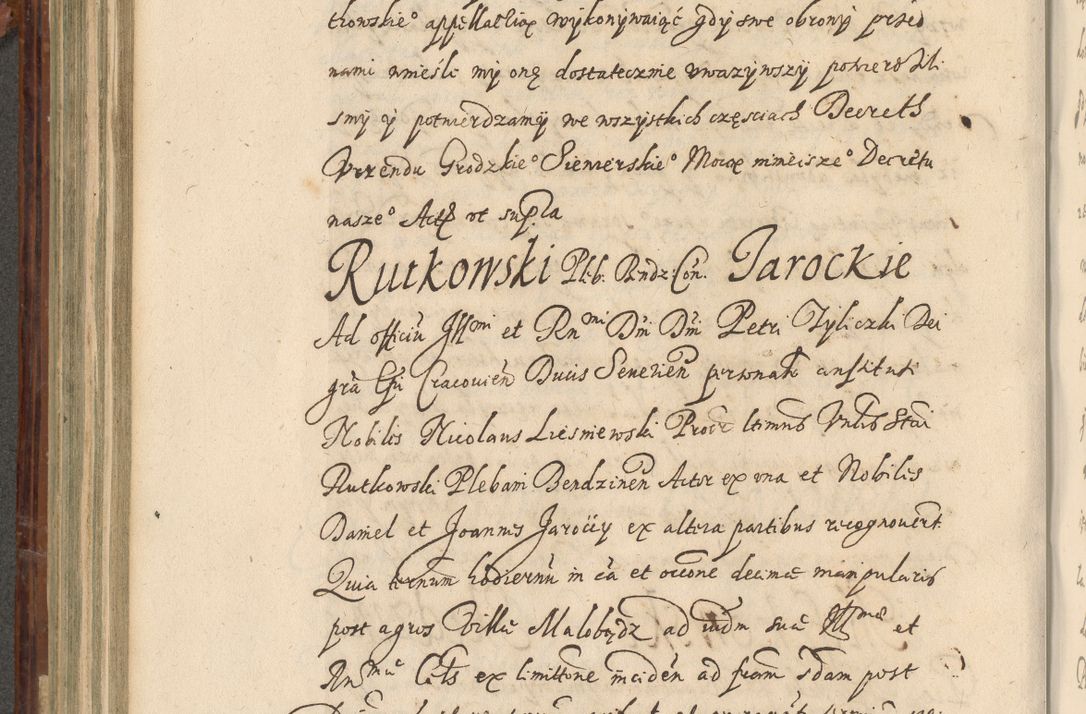 tkowskieº appellatią wykonywaiąć gdy swe obrony przed
nami wnieśli my onę dostatecznie uwazywszy potwierdzili
smy y potwierdzamy we wszystkich częsciach Decreth
Vrzendu Grodzkieº Siewierskieº Mocą ninieiszeº Decretu
naszeº Acth ut supra
Rutkowski Pleb. Bendz: Con. Jarockie
Ad officiu Illmi et Rnmi Dni Dni Petri Tyliczki Dei
gra Epi Cracovien Ducis Severien personalr constituti
Nobiles Nicolaus Liesniewski Procr ltimus Vnlis Stai
Rutkowski Plebani Bendzinen Actor ex una et Nobiles
Daniel et Joannes Jaroccy ex altera partibus recognouert
Quia ternum hodiernu in ca et occone decimæ manipularis
post agros Villæ Malobądz ad iudm suæ Illmæ et
Rnmæ Cels ex limittone inciden ad feram sdam post